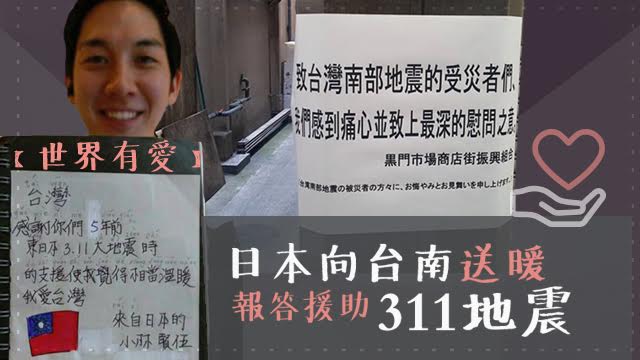 致台灣南部地震的受災者們、
我們感到痛心並致上最深的慰問之意
黒門市場商店街振興組合
台湾南部地震の被災者の方々に、お悔やみとお見舞いを申し上げます。
【世界有愛】
台灣
感謝你們 5年前
東日本 3.11 大地震 時
的支援使我覺得相當溫暖
我愛台灣
來自日本的
小林 賢伍
日本向台南送暖
報答援助311地震